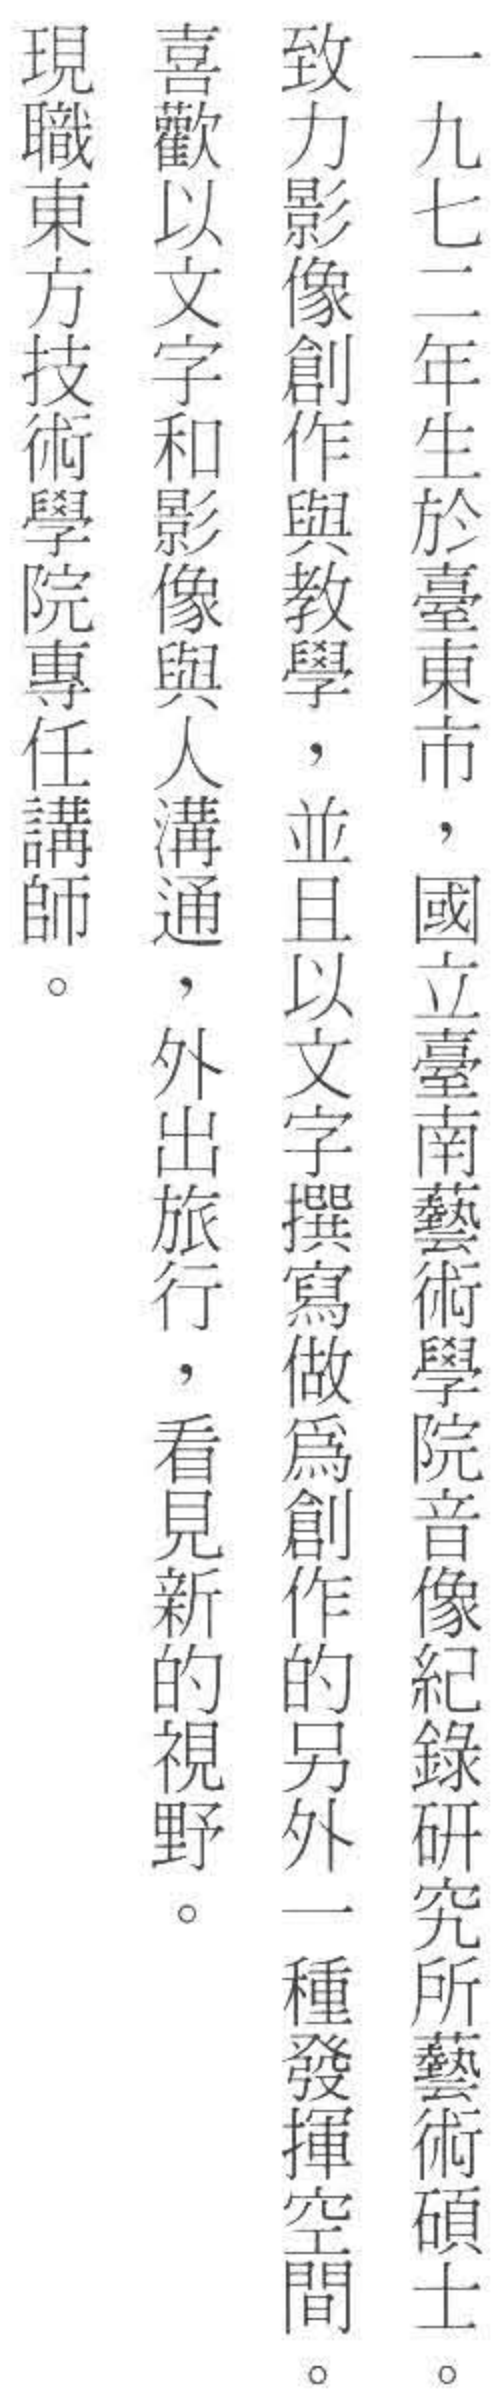 一九七二年生於臺東市，國立臺南藝術學院音像紀錄研究所藝術碩士。
致力影像創作與教學，並且以文字撰寫做爲創作的另外一種發揮空間。
喜歡以文字和影像與人溝通，外出旅行，看見新的視野。
現職東方技術學院專任講師。